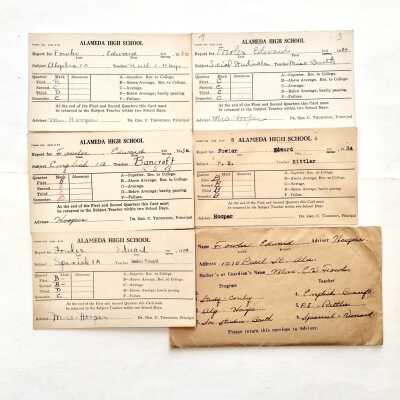 ALAMEDA HIGH SCHOOL
Report for Fowler Edward
Subject Algebra 1A Teacher
Quarter Mark Absences
First
Second C
Third D
Final C
A—Superior. Rec. to College.
B—Above Average, Rec. to College.
C—Average.
D—Below Average; barely passing.
F—Failure.
At the end of the First and Second Quarters this Card must
be returned to the Subject Teacher within two School days.
Adviser Mrs. Hooper Dr. Geo. C. Thompson, Principal
ALAMEDA HIGH SCHOOL
Report for Fowler Edward
Subject Social Studies Teacher Miss Smith
Quarter Mark Absences
First
Second C
Third
Final C
A—Superior. Rec. to College.
B—Above Average, Rec. to College.
C—Average.
D—Below Average; barely passing.
F—Failure.
At the end of the First and Second Quarters this Card must
be returned to the Subject Teacher within two School days.
Adviser Mrs Hooper Dr. Geo. C. Thompson, Principal
ALAMEDA HIGH SCHOOL
Report for Fowler Edward
Subject English 1A Teacher Bancroft
Quarter Mark Absences
First
Second
Third
Final
A—Superior. Rec. to College.
B—Above Average, Rec. to College.
C—Average.
D—Below Average; barely passing.
F—Failure.
At the end of the First and Second Quarters this Card must
be returned to the Subject Teacher within two School days.
Adviser Hooper Dr. Geo. C. Thompson, Principal
ALAMEDA HIGH SCHOOL
Report for Fowler Edward
Subject P. E. Teacher Rittler
Quarter Mark Absences
First
Second
Third
Final
A—Superior. Rec. to College.
B—Above Average, Rec. to College.
C—Average.
D—Below Average; barely passing.
F—Failure.
At the end of the First and Second Quarters this Card must
be returned to the Subject Teacher within two School days.
Adviser Hooper Dr. Geo. C. Thompson, Principal
ALAMEDA HIGH SCHOOL
Report for Fowler
Subject Spanish 1A Teacher
Quarter Mark Absences
First B
Second B
Third D
Final C
A—Superior. Rec. to College.
B—Above Average, Rec. to College.
C—Average.
D—Below Average; barely passing.
F—Failure.
At the end of the First and Second Quarters this Card must
be returned to the Subject Teacher within two School days.
Adviser Mrs. Hooper Dr. Geo. C. Thompson, Principal
Name Fowler Edward Adviser Hooper
Address 1210 St. Ala.
Mother's or Guardian's Name Mrs. Fowler
Program Teacher
1. Study 4. English Bancroft
2. Alg. 5. P.E. Rittler
3. Soc Studies Smith 6. Spanish
Please return this envelope to Adviser.